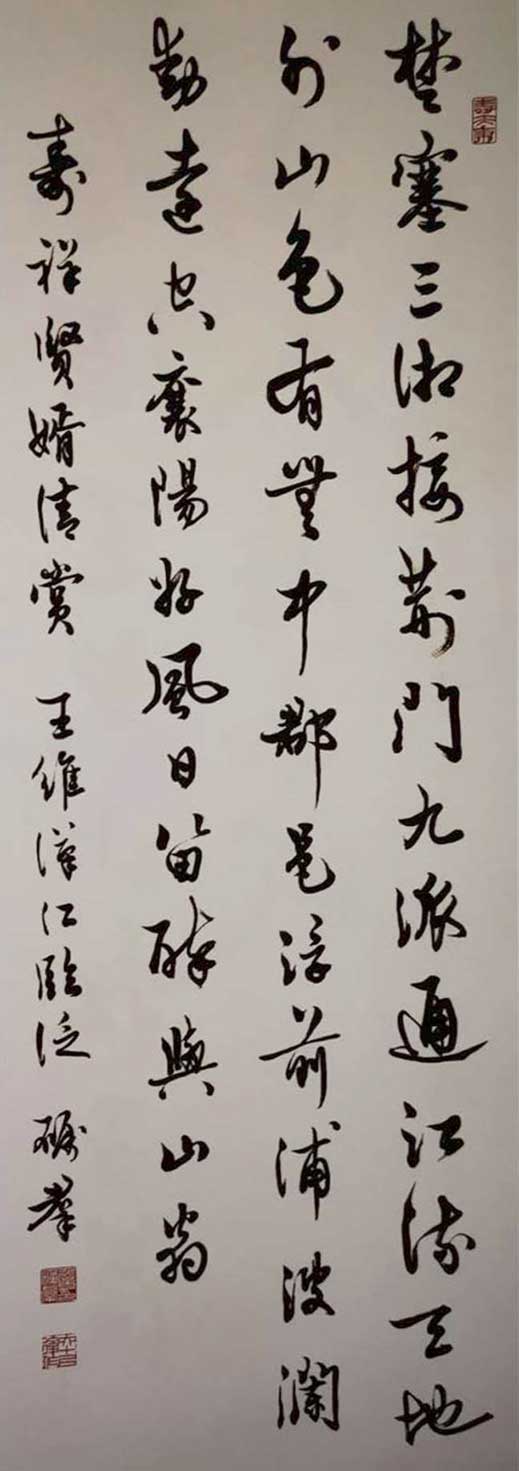 楚塞三湘接荊門九派通江流天地
外山色有無中郡邑浮前浦波瀾
動遠空襄陽好風日留醉與山翁
壽祥賢婿清賞 王維漢江臨泛